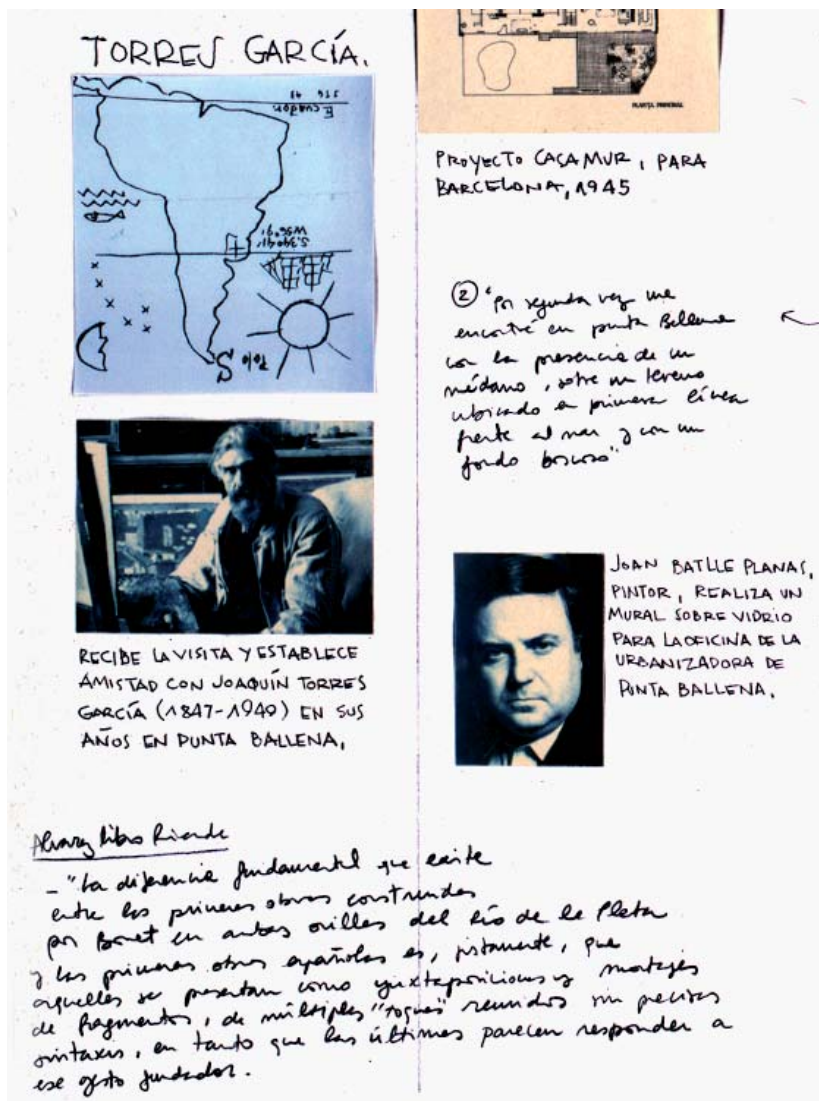 TORRES GARCÍA.
Ecuador
S.34°41'
W56°9'
Polo S
RECIBE LA VISITA Y ESTABLECE
AMISTAD CON JOAQUÍN TORRES
GARCÍA (1847-1949) EN SUS
AÑOS EN PUNTA BALLENA,
PLANTA PRINCIPAL
PROYECTO CASA MUR, PARA
BARCELONA, 1945
2 "Por segunda vez me
encontré en punta Ballena
con la presencia de un
médano, sobre un terreno
ubicado en primera línea
frente al mar y con un
fondo boscoso"
JOAN BATLLE PLANAS,
PINTOR, REALIZA UN
MURAL SOBRE VIDRIO
PARA LA OFICINA DE LA
URBANIZADORA DE
PUNTA BALLENA.
Alvarez libro
- "La diferencia fundamental que existe
entre las primeras obras construidas
por Bonet en ambas orillas del Río de la Plata
y las primeras obras españolas es, justamente, que
aquellas se presentan como yuxtaposiciones y montajes
de fragmentos, de múltiples "toques" reunidos sin precisas
sintaxis, en tanto que las últimas parecen responder a
ese gesto fundador.